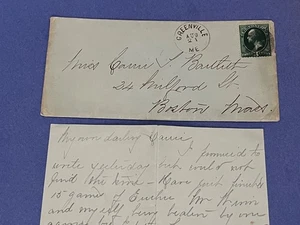 GREENVILLE
ME.
Miss Carrie J. Bartlett
34 Milford St.
Boston Mass.
My own darling Carrie,
I promised to
write yesterday but could not
find the time - Have just finished
15 games of Euchre Mr
and myself being beaten by one
game